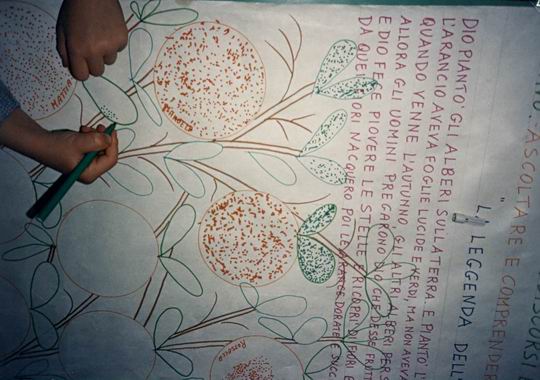 ASCOLTARE E COMPRENDERE
" LA LEGGENDA DELL
DIO PIANTO' GLI ALBERI SULLA TERRA. E PIANTO' L
L'ARANCIO AVEVA FOGLIE LUCIDE E VERDI, MA NON AVEVA
QUANDO VENNE L'AUTUNNO, GLI ALTRI ALBERI PER
ALLORA GLI UOMINI PREGARONO DIO CHE DESSE FRUT
E DIO FECE PIOVERE LE STELLE E RICOPRÌ DI FIORI
DA QUEI FIORI NACQUERO POI LE ARANCE DORATE E SUCC
MATTIA
ANTONIO